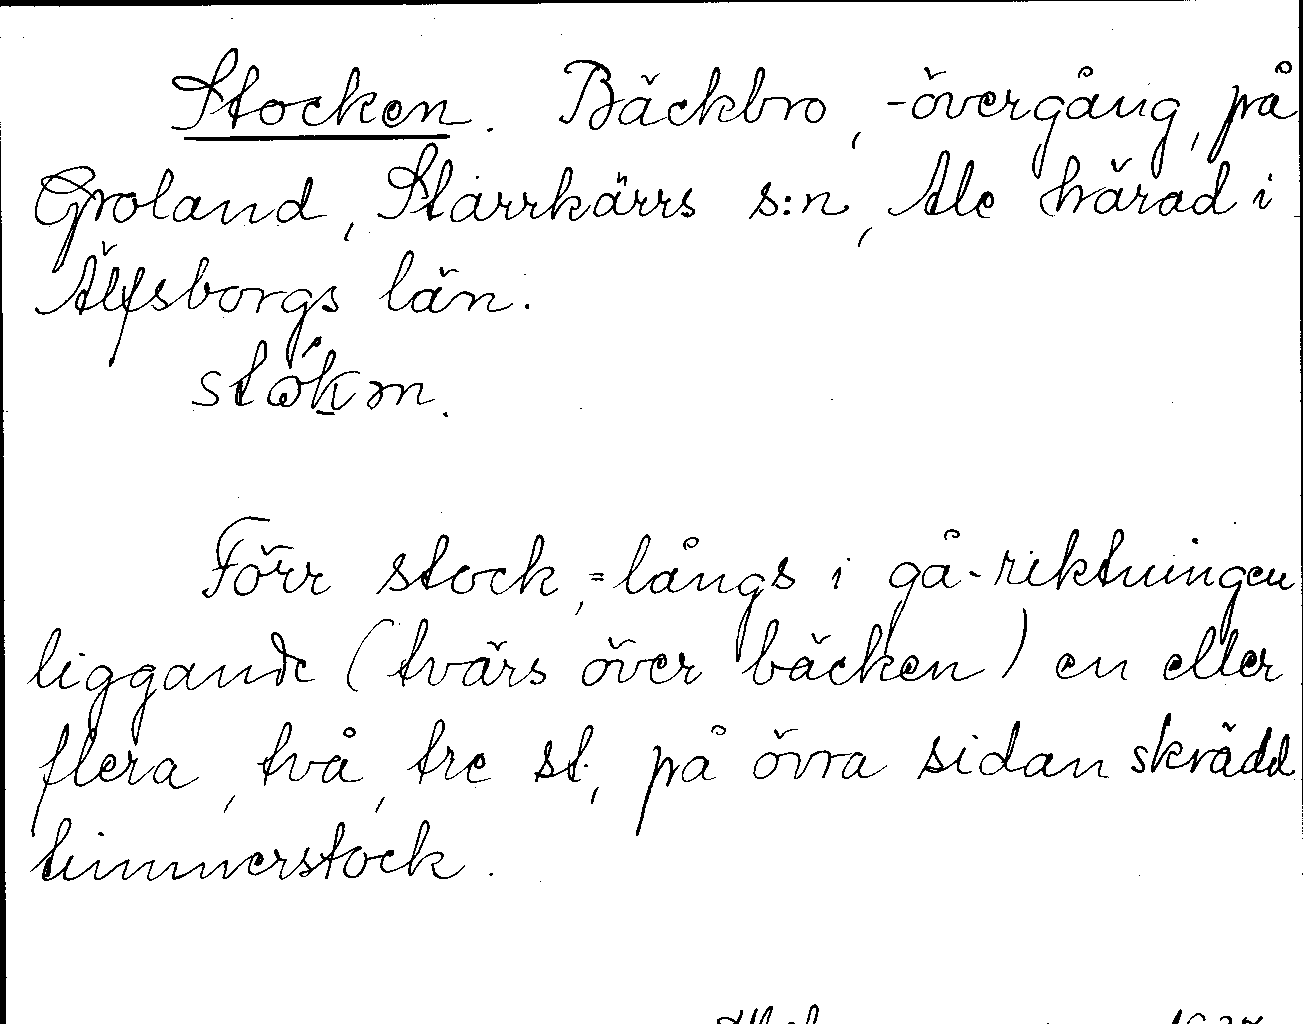 Stocken. Bäckbro, -övergång, på
Groland, Starrkärrs s:n, Ale härad i
Älfsborgs län.
Förr stock, = långs i gå-riktningen
liggande (tvärs över bäcken) en eller
flera, två, tre st, på övra sidan skrädd
timmerstock.